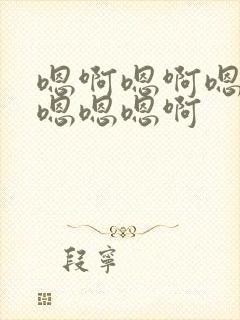 嗯啊嗯啊嗯
嗯嗯嗯啊
段寧